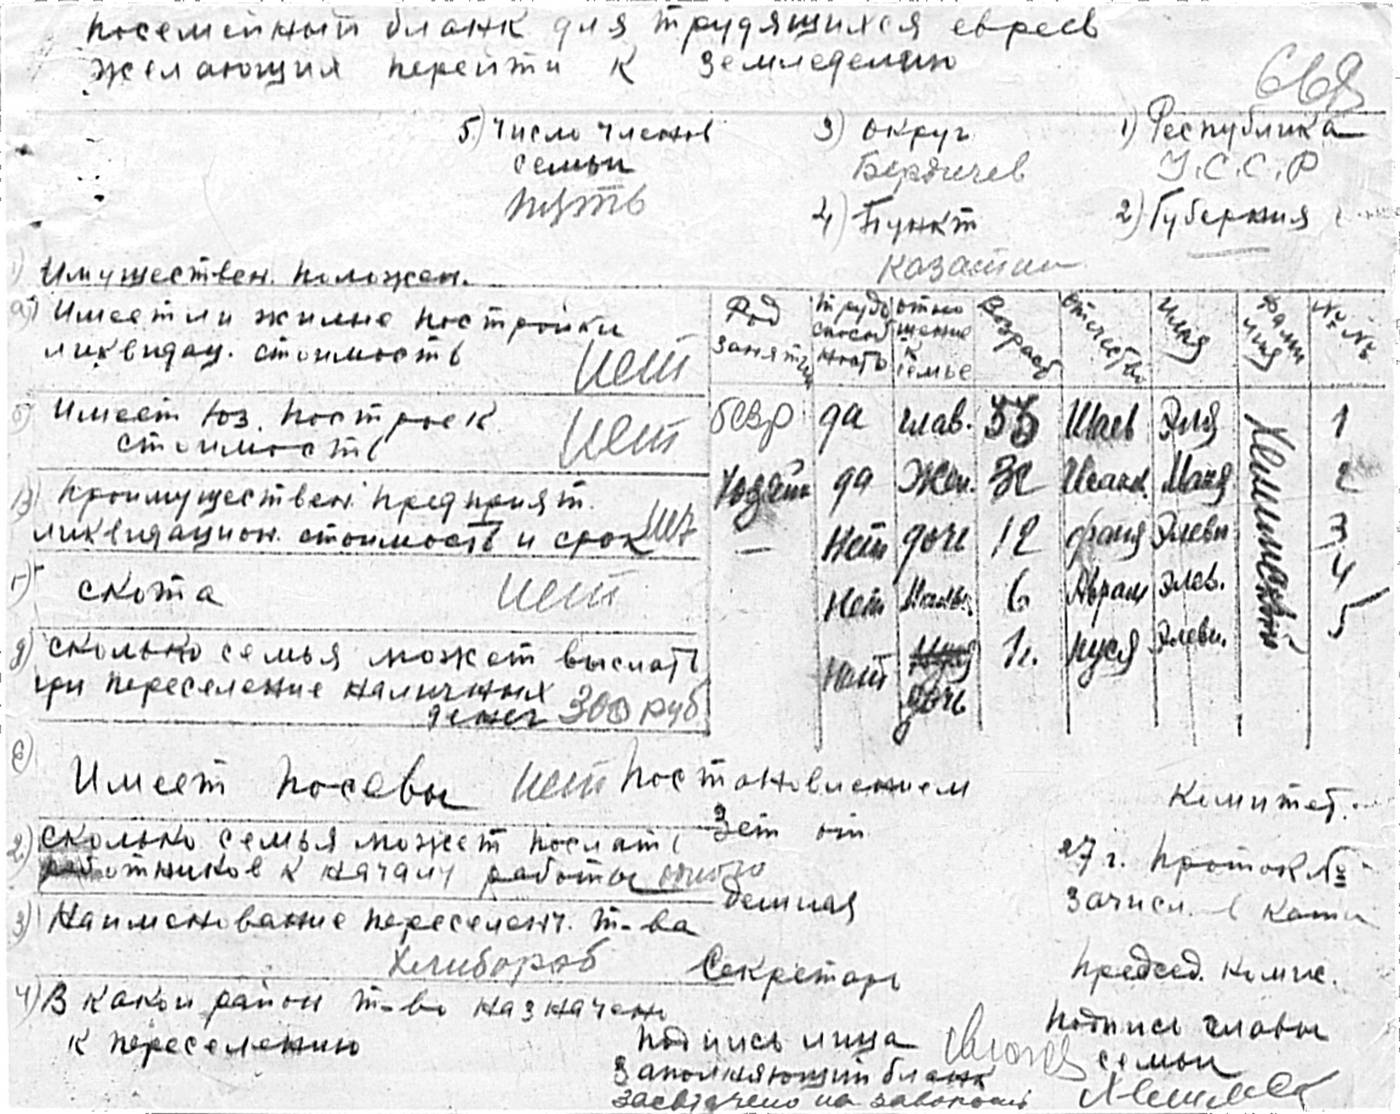 Посемейный бланк для трудящихся евреев
желающих перейти к земледелию
5) Число членов 3) Округ 1) Республика
семьи Бердичев У.С.С.Р
пять 4) Пункт 2) Губерния
Казатин
1) Имуществен. положен.
а) Имеет ли жилые постройки
ликвидац. стоимость нет
б) Имеет хоз. построек
стоимость нет
в) промуществен предприят.
ликвидацион. стоимость и срок нет
г) скота нет
д) сколько семья может выслать
при переселение наличных
денег 300 руб
Род занятия трудоспособность отношение к семье Возраст отчество имя фамилия №№
безр да глав. Шаев Эля 1
Хозяйн да Жен. Исаак. Маня 2
— Нет дочь 12 фаня Элевн 3
Нет 6 Аврам Элев. 4
Нет дочь 1 г. нуся Элевн. 5
е) Имеет посевы нет
Постановлением Комитет.
Зет от 27 г. проток №
2) сколько семья может послать
работников к началу работы одного
зачисл. в канд
3) Наименование переселенч. т-ва
Хлибороб
Секретарь Председ. комис.
4) В какой район т-во назначено
к переселению
Подпись лица
Заполняющий бланк
Подпись главы
семьи